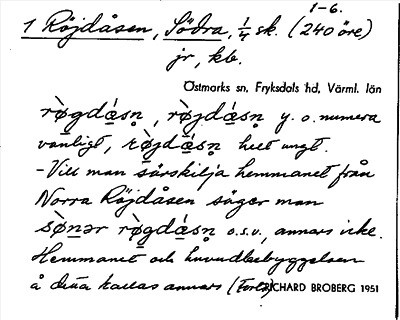 1-6.
1 Röjdåsen, Södra, 1/4 sk. (240 öre)
jr, kb.
Östmarks sn, Fryksdals hd, Värml. län
rø̀gdá̊sn̥, rø̀jdá̊sn̥ y. o. numera
vanligt, rø̀jdá̊sn̥ helt ungt.
- Vill man särskilja hemmanet från
Norra Röjdåsen säger man
sø̀nər rø̀gdá̊sn o.s.v., annars icke.
Hemmanet och huvudbebyggelsen
å detta kallas annars (Forts)
RICHARD BROBERG 1951